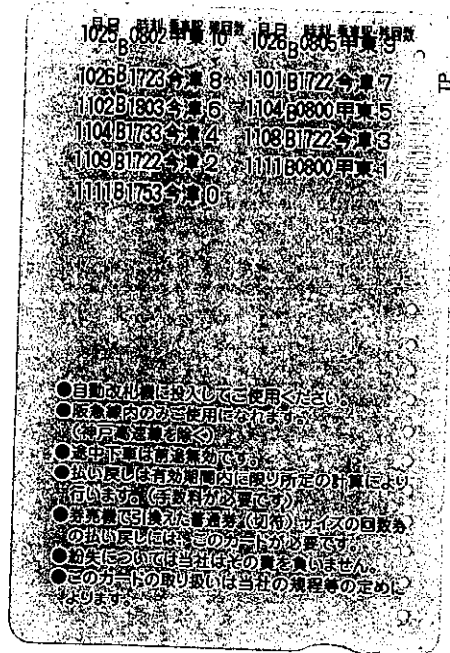 月日 時刻 乗車駅 残回数 月日 時刻 乗車駅 残回数
1025B0802甲東10 1026B0805甲東9
1026B1723今津8 1101B1722今津7
1102B1803今津6 1104B0800甲東5
1104B1733今津4 1108B1722今津3
1109B1722今津2 1111B0800甲東1
1111B1753今津0
TP
●自動改札機に投入してご使用ください。
●阪急線内のみご使用になれます。
(神戸高速線を除く)
●途中下車は前途無効です。
●払い戻しは有効期間内に限り所定の計算により
行います。(手数料が必要です)
●券売機で引換えた普通券(切符)サイズの回数券
の払い戻しには、このカードが必要です。
●紛失については当社はその責を負いません。
●このカードの取り扱いは当社の規程等の定めに
よります。